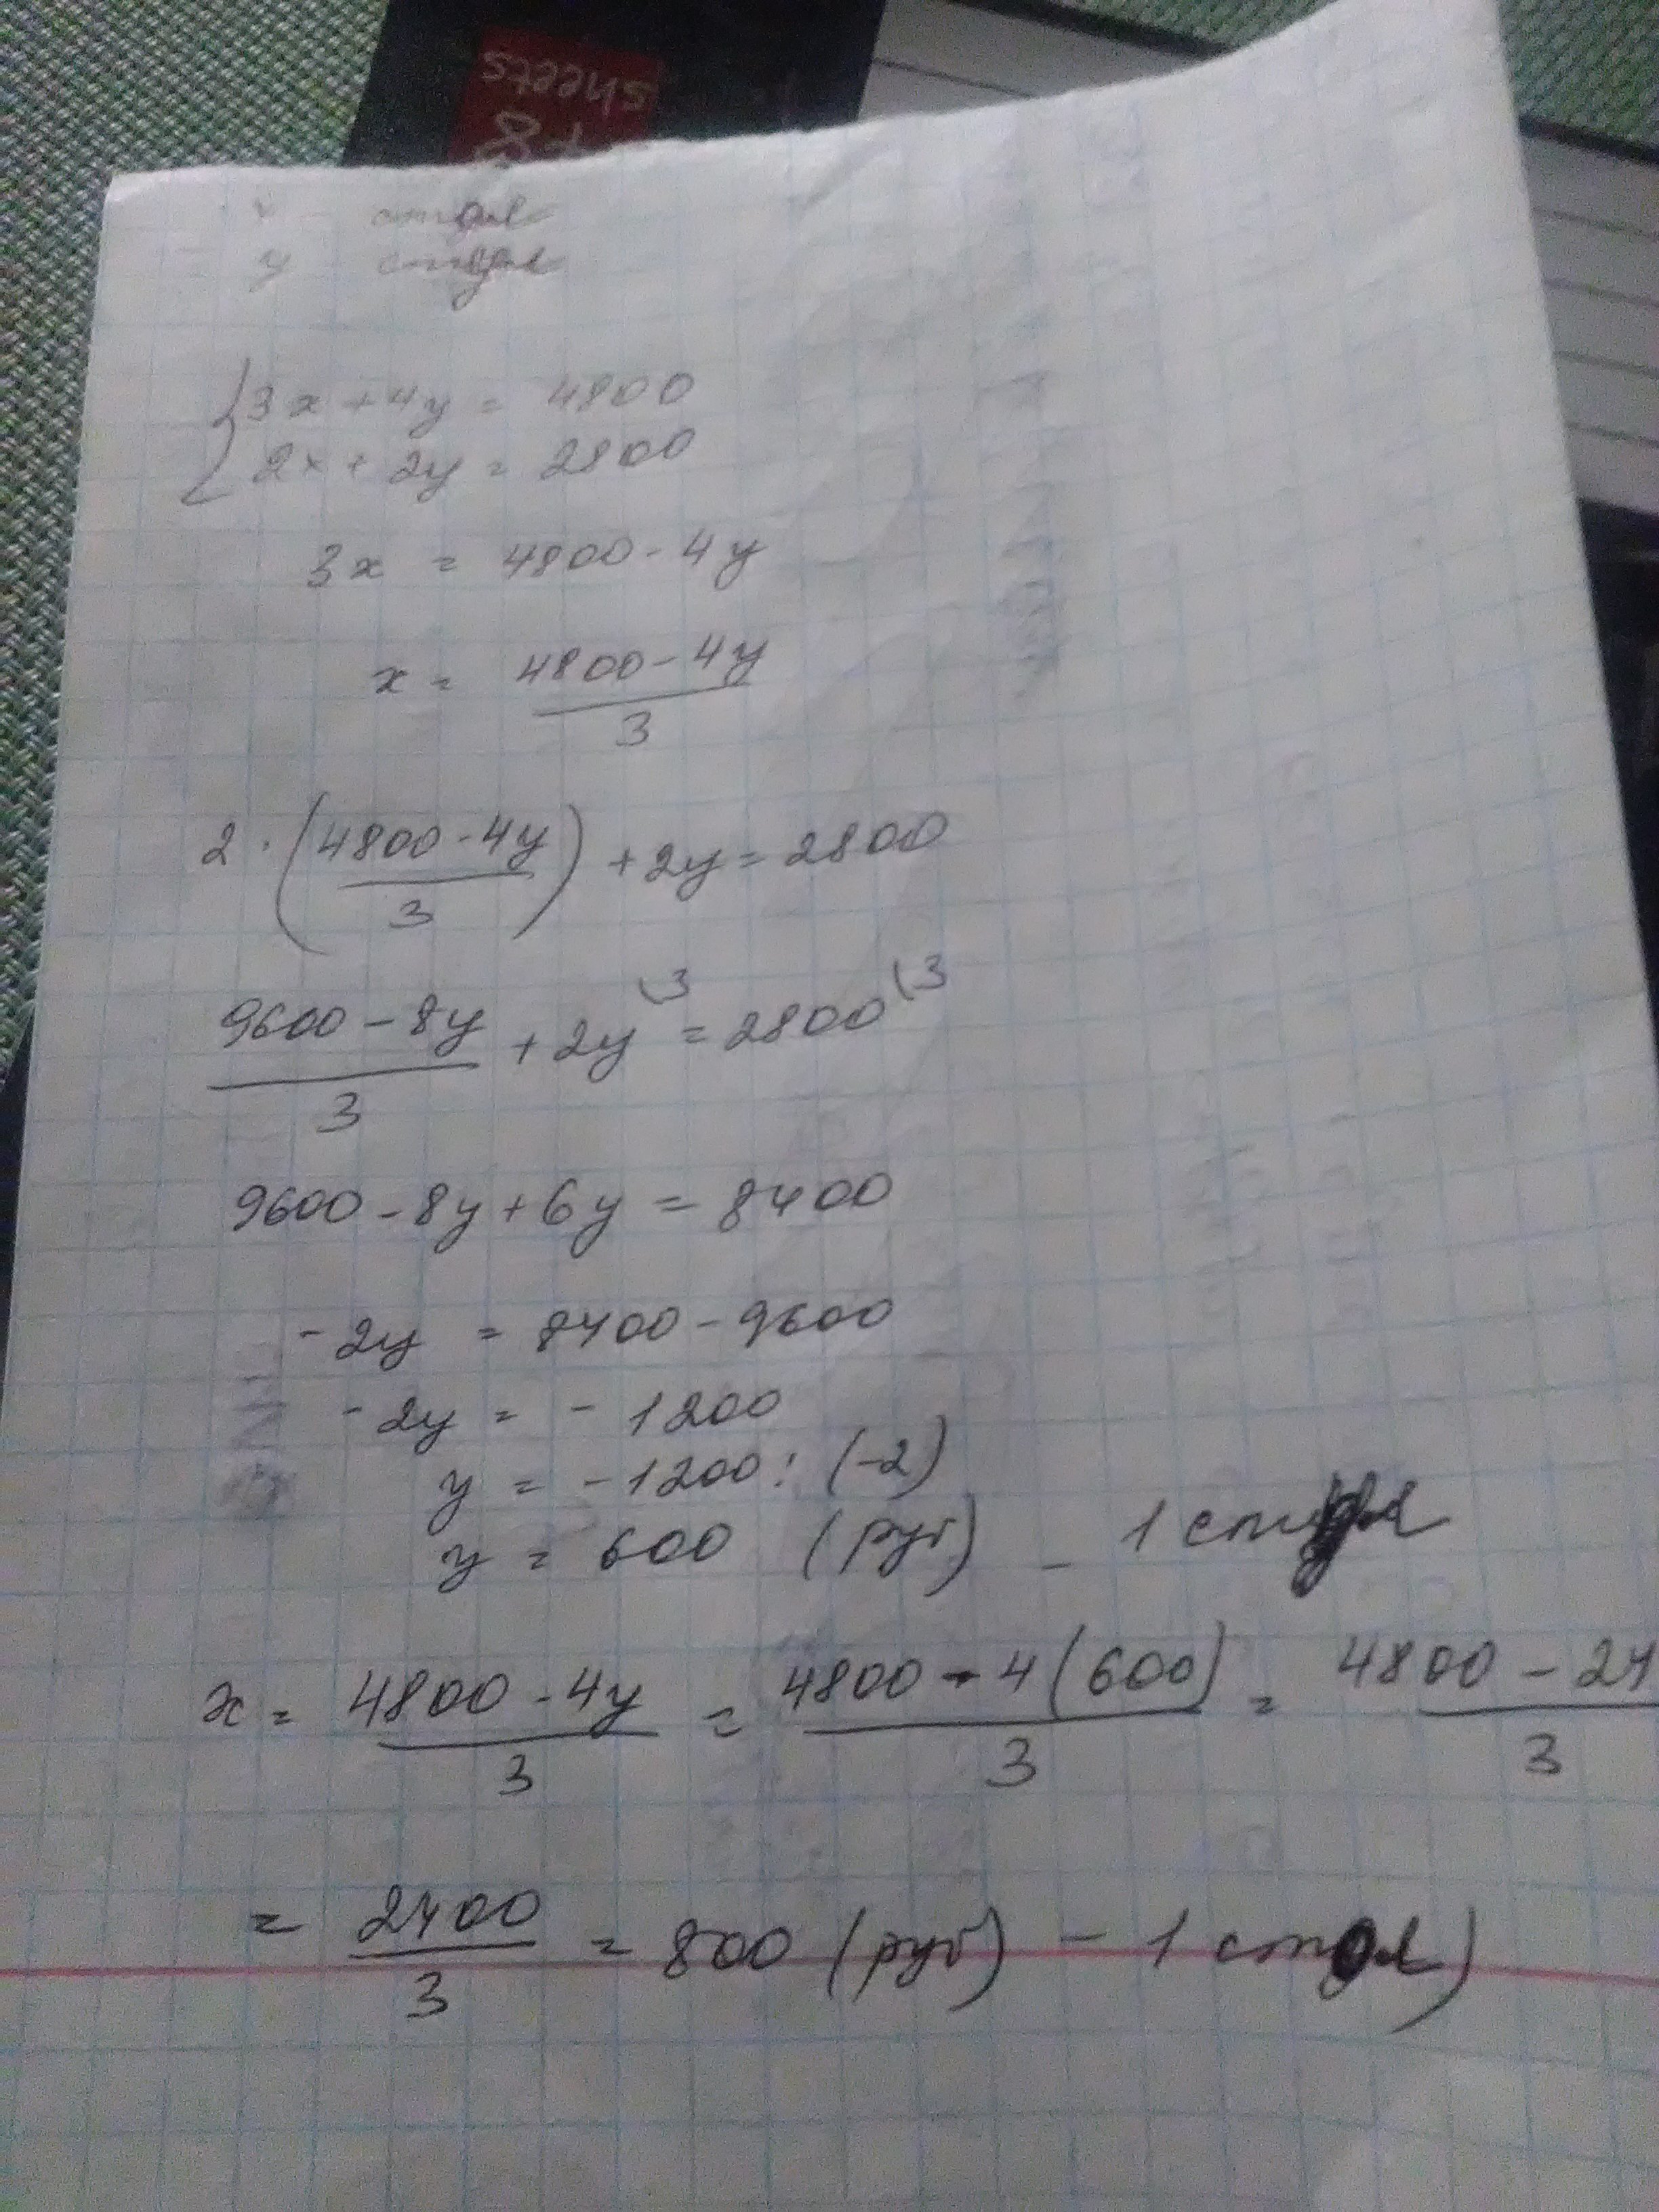 sheets
48
x - стол
y - стул
3x + 4y = 4800
2x + 2y = 2800
3x = 4800 - 4y
x = 4800 - 4y / 3
2 · (4800 - 4y / 3) + 2y = 2800
9600 - 8y / 3 + 2y \3 = 2800 \3
9600 - 8y + 6y = 8400
-2y = 8400 - 9600
-2y = -1200
y = -1200 : (-2)
y = 600 (руб) - 1 стул
x = 4800 - 4y / 3 = 4800 - 4(600) / 3 = 4800 - 24 / 3
= 2400 / 3 = 800 (руб) - 1 стол)